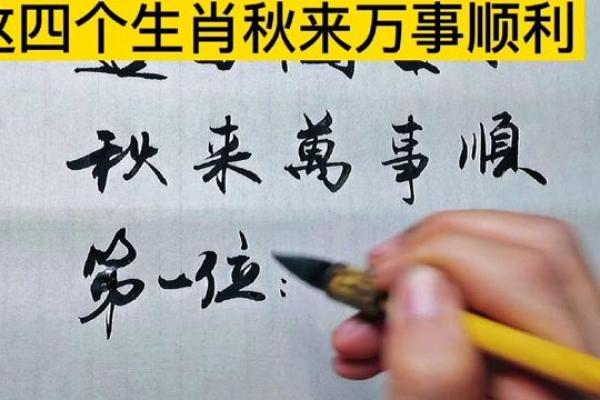 这四个生肖秋来万事顺利
秋来萬事順
第一位：